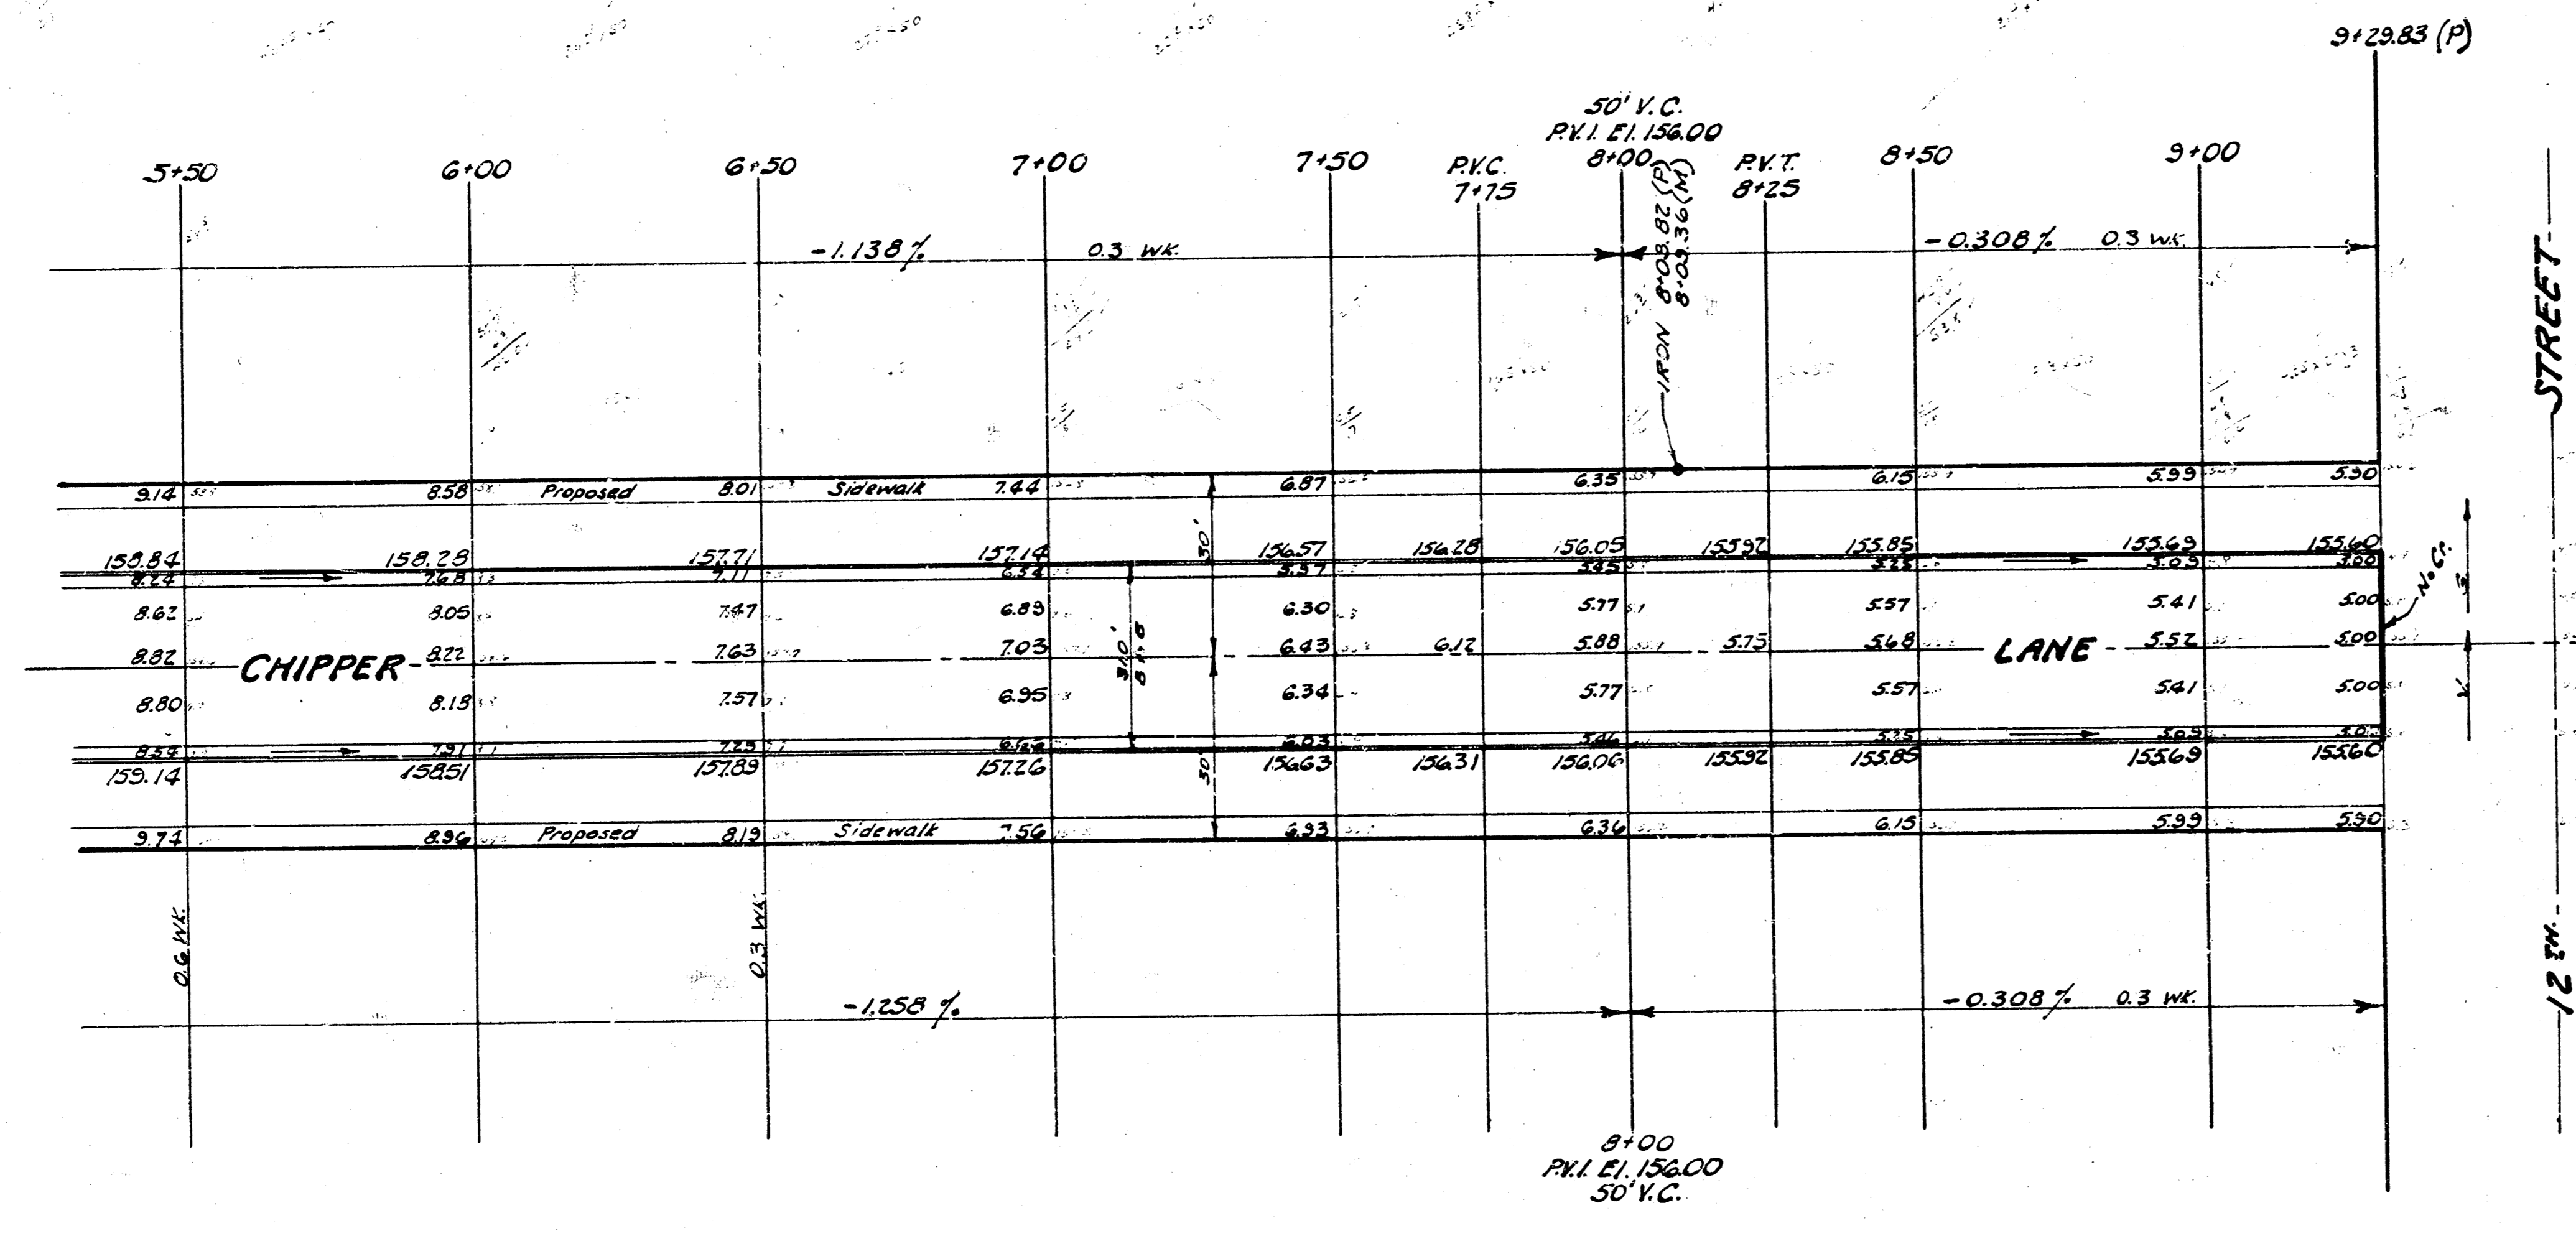 9+29.83 (P)
50' V.C.
P.V.I. El. 156.00
5+50 6+00 6+50 7+00 7+50 P.V.C. 7+75 8+00 P.V.T. 8+25 8+50 9+00
IRON 8+08.82 (P)
8+09.36 (M)
-1.138% 0.3 WK. -0.308% 0.3 WK.
9.14 8.58 Proposed 8.01 Sidewalk 7.44 6.87 6.35 6.15 5.99 5.90
158.84 158.28 157.71 157.14 156.57 156.28 156.05 155.92 155.85 155.69 155.60
8.24 7.68 7.11 6.54 5.97 5.45 5.25 5.09 5.00
8.62 8.05 7.47 6.89 6.30 5.77 5.57 5.41 5.00
8.82 CHIPPER 8.22 7.63 7.03 6.43 6.12 5.88 5.75 5.68 LANE 5.52 5.00
8.80 8.18 7.57 6.95 6.34 5.77 5.57 5.41 5.00
8.54 7.91 7.29 6.03 5.46 5.25 5.09
159.14 158.51 157.89 157.26 156.63 156.31 156.06 155.92 155.85 155.69 155.60
9.74 8.96 Proposed 8.19 Sidewalk 7.56 6.93 6.36 6.15 5.99 5.90
30'
31.0'
B to B
30'
No Cr.
0.6 WK. 0.3 WK.
-1.258% -0.308% 0.3 WK.
8+00
P.V.I. El. 156.00
50' V.C.
12TH. STREET